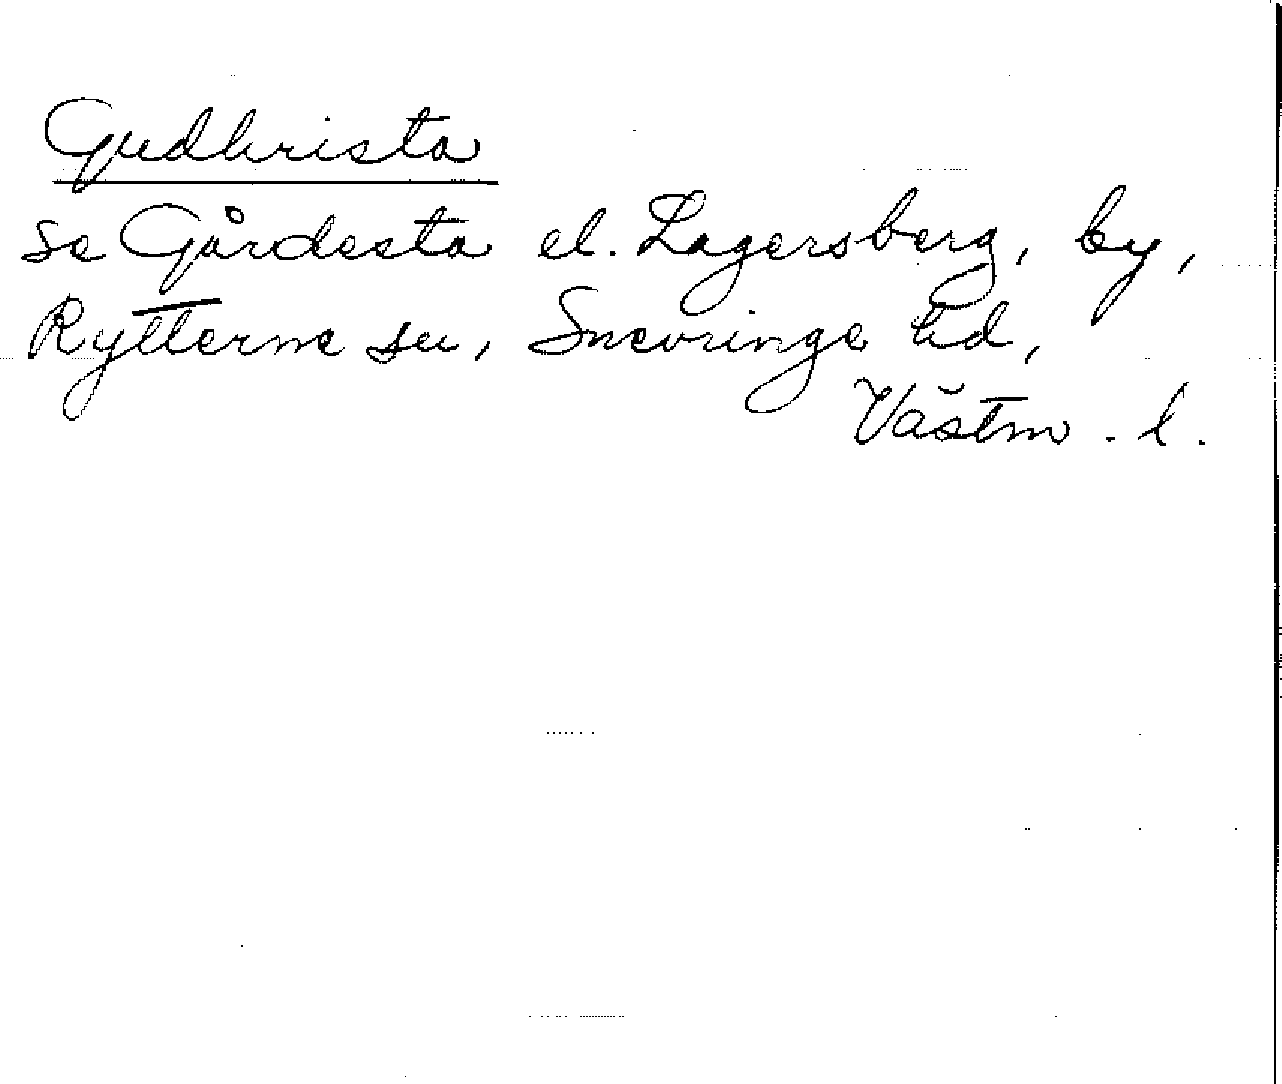 Gudhrista
se Gårdesta el. Lagersberg, by,
Rytterne sn, Snevringe hd,
Västm. l.